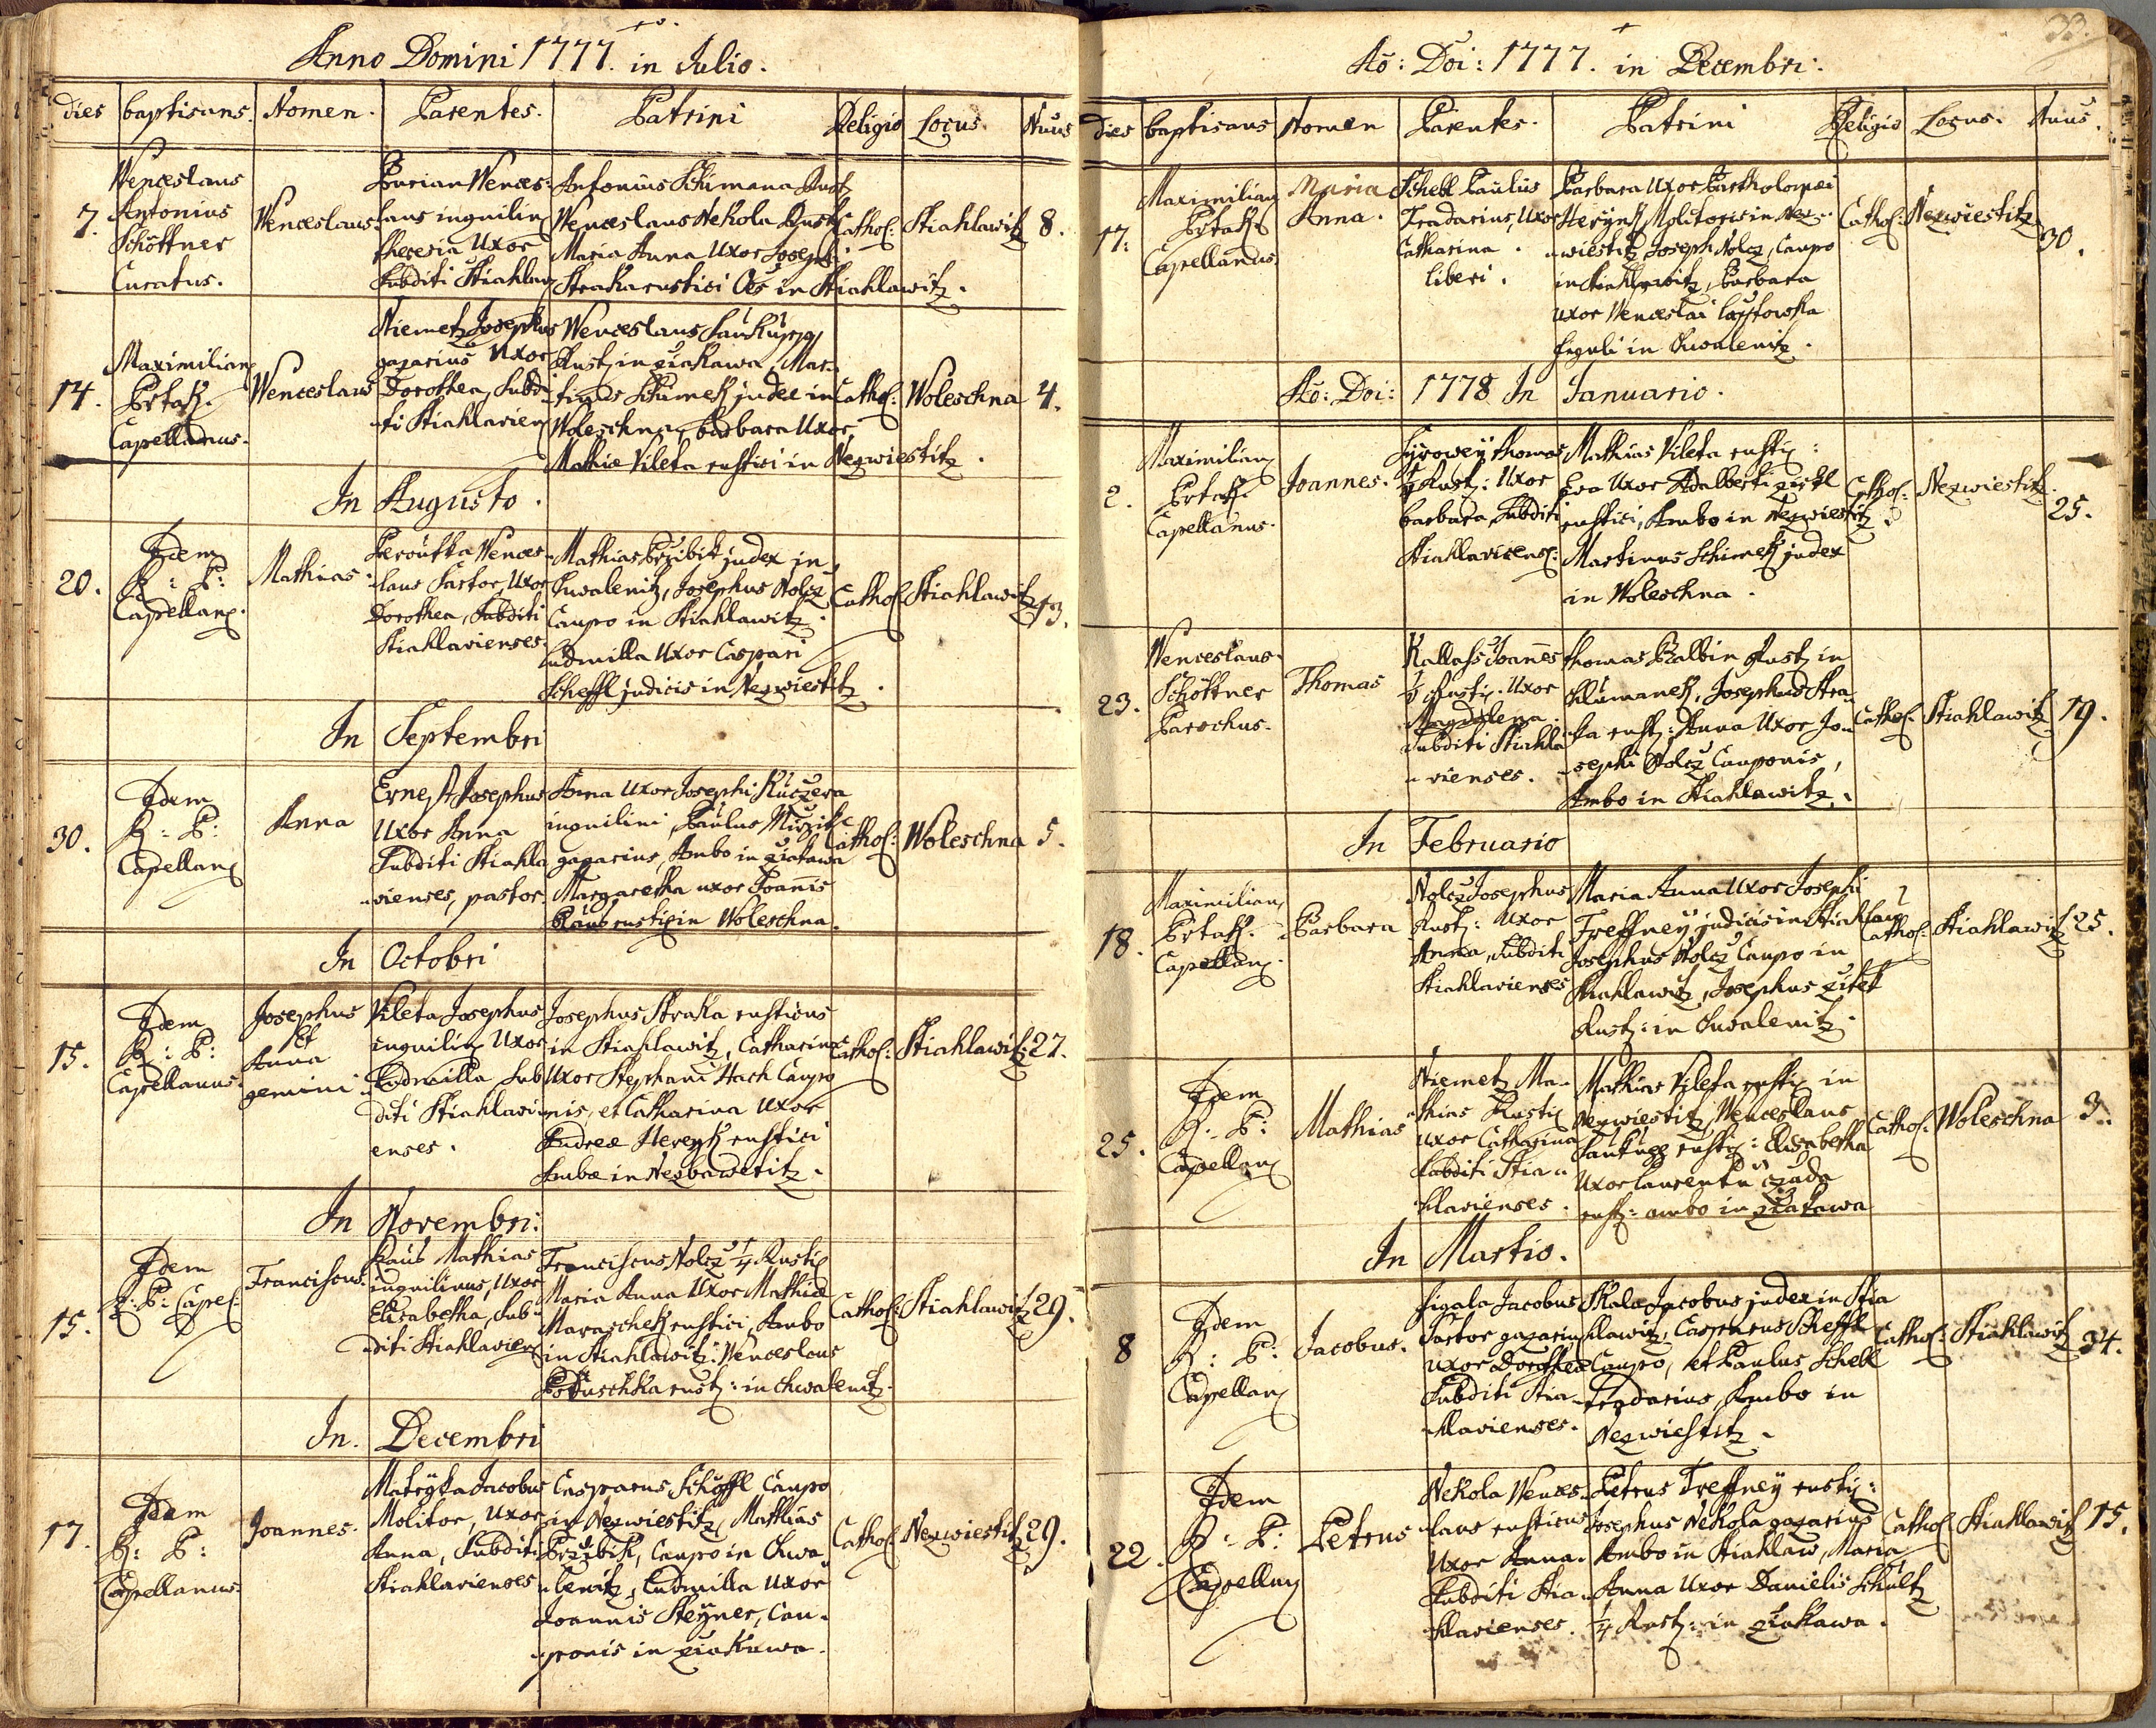 Anno Domini 1777. in Julio.
dies baptisans. Nomen. Parentes. Patrini Religio Locus. Nuūs
7. Wenceslaus Antonius Schöttner Curatus.
Wenceslaus
Burian Wences:
laus inquilin
theresia Uxor
Subditi Stiahlav
Antonius Schimana Rust
Wenceslaus Nekola Rust
Maria Anna Uxor Josephi
Straka rustici Oēs in Stiahlawitz.
Cathol: Stiahlawitz 8.
14. Maximilian
Capellanus.
Wenceslaus
Niemetz Josephus
gazarius Uxor
Dorothea, Subdi-
-ti Stiahlavien
Wenceslaus
Rust, in Ziakawa, Mar-
-tinus Schimek judex in
Woleschna, Barbara Uxor
Mathiæ Vileta rustici in Nezwiestitz.
Cathol: Woleschna 4.
In Augusto.
20. Idem
R: P:
Capellanꝫ.
Mathias
Wences-
-laus Sartor, Uxor
Dorothea, Subditi
Stiahlavienses.
Mathias Przibik judex in
Chwalenitz, Josephus Nolcz
Caupo in Stiahlawitz.
Ludmilla Uxor Caspari
Scheffl judicis in Nezwiestitz.
Cathol: Stiahlawitz 13.
In Septembri
30. Idem
R: P:
Capellanꝫ
Anna
Ernest Josephus
Uxor Anna
Subditi Stiahla
-vienses, pastor.
Anna Uxor Josephi Kuczera
inquilini, Paulus
gazarius, Ambo in Ziakawa
Margaretha uxor Joannis
rustici in Woleschna.
Cathol: Woleschna 5.
In Octobri
15. Idem
R: P:
Capellanus.
Josephus
et
Anna
gemini
Vileta Josephus
inquilin Uxor
Ludmilla Sub
diti Stiahlavi
enses.
Josephus Straka rusticus
in Stiahlawitz, Catharina
Uxor Stephani Hach Caupo
nis, et Catharina Uxor
Andreæ Hereyk rustici
Ambæ in Nezbawetitz.
Cathol: Stiahlawitz 27.
In Novembri:
15. Idem
R: P: Capel:
Franciscus.
Mathias
inquilinus, Uxor
Elisabetha, Sub-
-diti Stiahlavien
Franciscus Nolcz 1/4 Rusti
Maria Anna Uxor Mathiæ
Maraschek rustici, Ambo
in Stiahlawitz. Wenceslaus
rust: in Chwalenitz.
Cathol: Stiahlawitz 29.
In. Decembri
17. Idem
R: P:
Capellanus.
Joannes.
Matyska Jacobus
Molitor, Uxor
Anna, Subditi
Stiahlavienses
Casparus Schöffl Caupo
in Nezwiestitz, Mathias
Przibik, Caupo in Chwa
-lenitz, Ludmilla Uxor
Joannis Steyner, Cau-
-ponis in Ziakawa.
Cathol: Nezwiestitz 29.
33.
Aō: Doi: 1777. in Decembri.
Dies baptisans Nomen Parentes. Patrini Religio Locus. Nuūs.
17. Maximilian
Capellanus.
Maria
Anna.
Schebl Paulus
Tradarius, Uxor
Catharina.
liberi.
Barbara Uxor Bartholomæi
Herynk, Molitoris in Nez-
-wiestitz, Joseph Nolcz, Caupo
in Stiahlawitz, Barbara
Uxor Wenceslai
figuli in Chwalenitz.
Cathol: Nezwiestitz 30.
Aō: Doi: 1778 In Januario.
2. Maximilian
Capellanus.
Joannes.
Syrowey thomas
Rust: Uxor
Barbara, Subditi
Stiahlaviens:
Mathias Vileta rusti:
Eva Uxor Adalberti
rustici, Ambo in Nezwiestitz.
Martinus Schimek judex
in Woleschna.
Cathol: Nezwiestitz 25.
23. Wenceslaus
Schöttner
Parochus.
Thomas
Kallass Joannes
Rusti. Uxor
Magdalena.
Subditi Stiahla
-vienses.
thomas Balbin Rust in
Schimanek, Josephus Stra-
-ka rust: Anna Uxor Jo-
-sephi Nolcz Cauponis,
Ambo in Stiahlawitz.
Cathol: Stiahlawitz 19.
In Februario
18. Maximilian
Capellanꝫ.
Barbara
Nolcz Josephus
Rust: Uxor
Anna, Subditi
Stiahlavienses
Maria Anna Uxor Josephi
Treffney judicis in Stiahlaw
Josephus Nolcz Caupo in
Stiahlawitz, Josephus Zitek
Rust: in Chwalenitz.
Cathol: Stiahlawitz 25.
25. Idem
R: P:
Capellanꝫ
Mathias
Niemetz Ma-
-thias Rusti
Uxor Catharina
Subditi Stia-
hlavienses.
Mathias Vileta rusti in
Nezwiestitz, Wenceslaus
rusti: Elisabetha
Uxor Laurentii
rust: ambo in Ziakawa
Cathol: Woleschna 3.
In Martio.
8 Idem
R: P:
Capellanꝫ
Jacobus.
Figala Jacobus
Sartor gazarius
Uxor Dorothea
Subditi Stia-
hlavienses.
Skala Jacobus judex in Stia
hlawitz, Casparus Scheffl
Caupo, et Paulus Schebl
Tradarius, Ambo in
Nezwiestitz.
Cathol: Stiahlawitz 34.
22. Idem
R: P:
Capellanꝫ
Petrus
Nekola Wences-
-laus rusticus
Uxor Anna.
Subditi Stia-
hlavienses.
Petrus Treffney rusti:
Josephus Nekola gazarius
Ambo in Stiahlaw, Maria
Anna Uxor Danielis Schultz
1/4 Rust: in Ziakawa.
Cathol: Stiahlawitz 15.